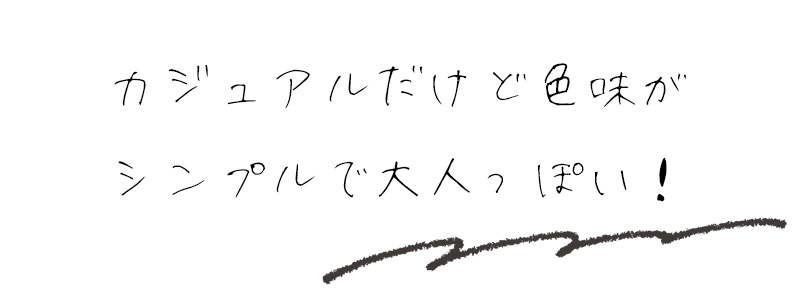 カジュアルだけど色味が
シンプルで大人っぽい！